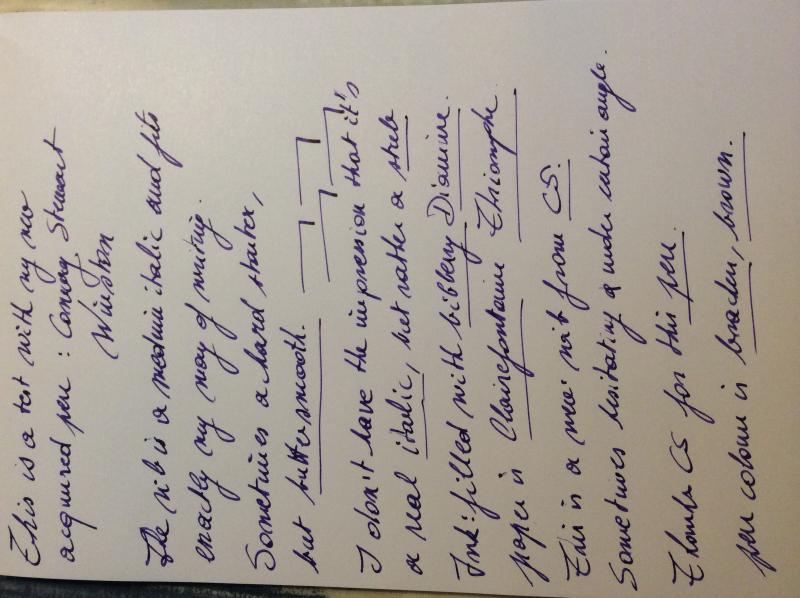 This is a test with my new
acquired pen: Conway Stewart
Winston
The nib is a medium italic and fits
exactly my way of writing.
Sometimes a hard starter,
but buttersmooth.
I don't have the impression that it's
a real italic, but rather a stub
Ink: filled with bilberry Diamine.
paper is Clairefontaine Triomphe
This is a new nib from CS.
Sometimes hesitating under certain angle.
Thanks CS for this pen.
pen colour is bracken, brown.